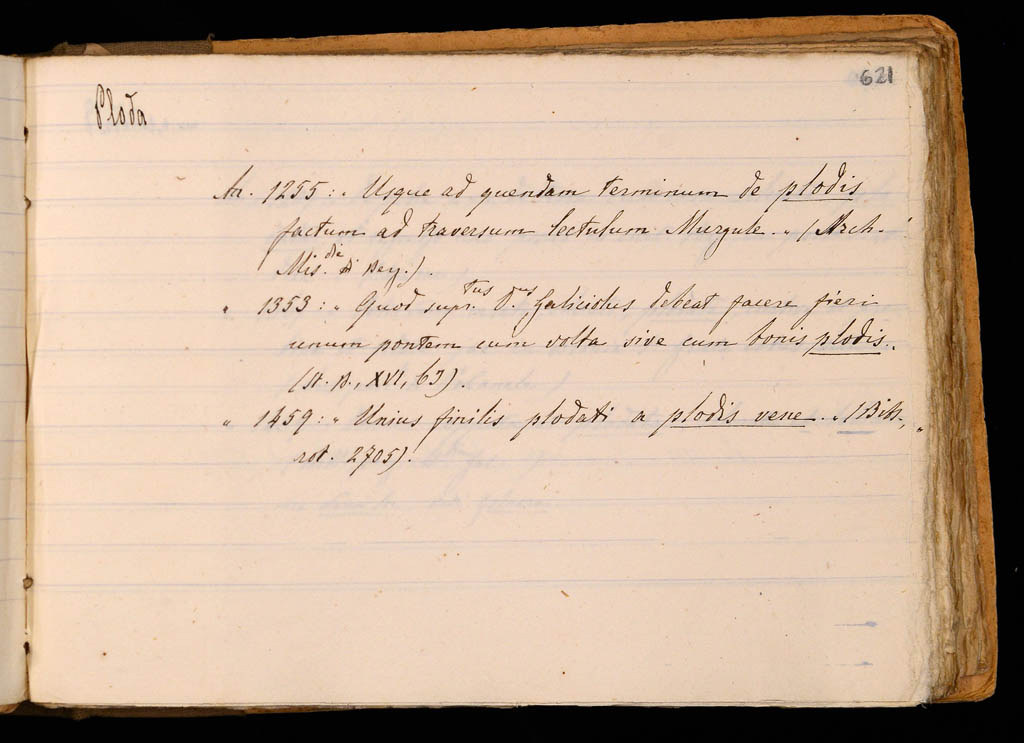 621
Ploda
An. 1255: „ Usque ad quendam terminum de plodis
factum ad traversum lectulum Murgule. „ (Arch.
Mis. die Berg.).
„ 1353: „ Quod supr.tus D.nus Galiciolus debeat facere fieri
unum pontem cum volta sive cum bonis plodis. „
(St. B., XVI, 63).
„ 1459: „ Unius finilis plodati a plodis vene. „ (Bib.,
rot. 2705).